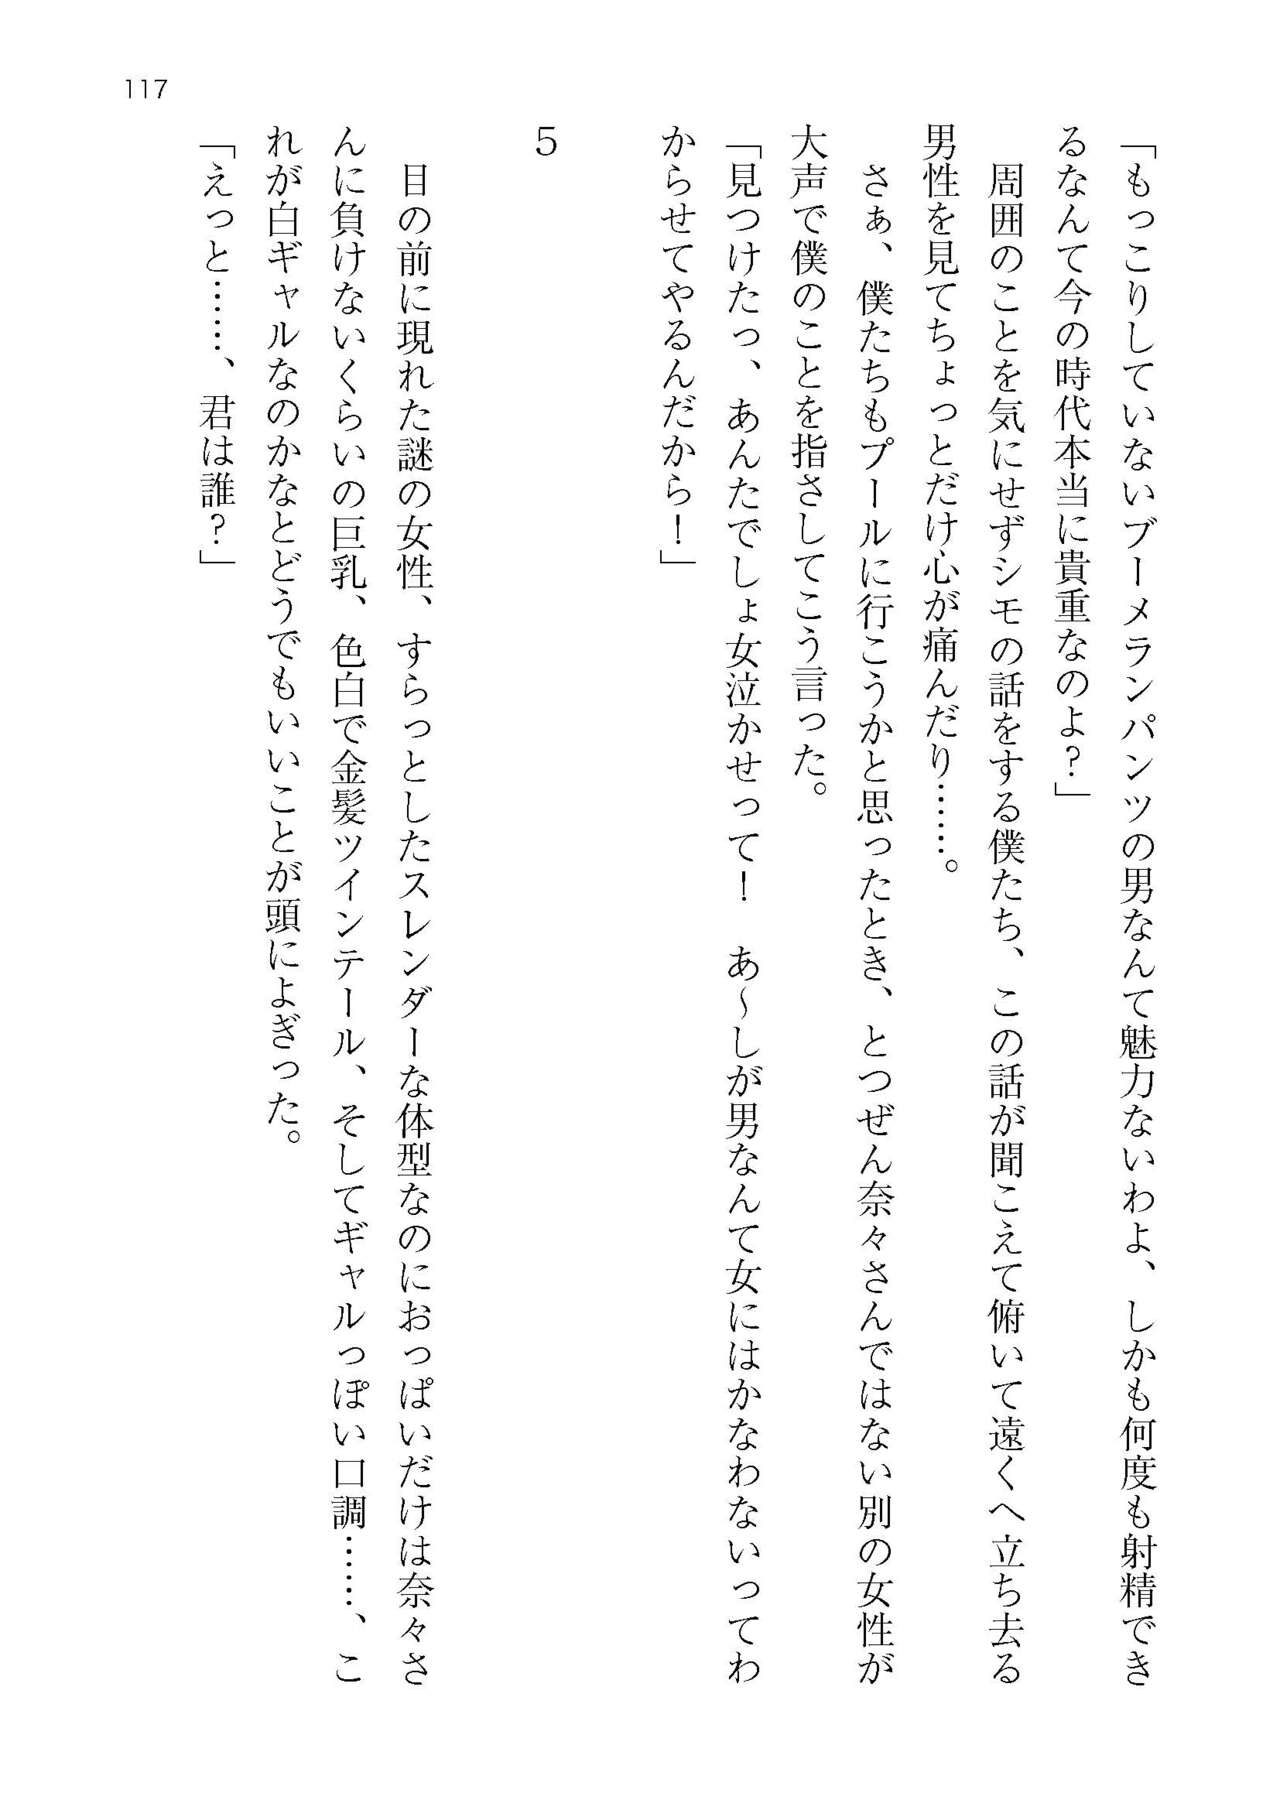 117
「もっこりしていないブーメランパンツの男なんて魅力ないわよ、しかも何度も射精でき
るなんて今の時代本当に貴重なのよ？」
　周囲のことを気にせずシモの話をする僕たち、この話が聞こえて俯いて遠くへ立ち去る
男性を見てちょっとだけ心が痛んだり……。
　さぁ、僕たちもプールに行こうかと思ったとき、とつぜん奈々さんではない別の女性が
大声で僕のことを指さしてこう言った。
「見つけたっ、あんたでしょ女泣かせって！　あ～しが男なんて女にはかなわないってわ
からせてやるんだから！」
5
　目の前に現れた謎の女性、すらっとしたスレンダーな体型なのにおっぱいだけは奈々さ
んに負けないくらいの巨乳、色白で金髪ツインテール、そしてギャルっぽい口調……、こ
れが白ギャルなのかなとどうでもいいことが頭によぎった。
「えっと……、君は誰？」